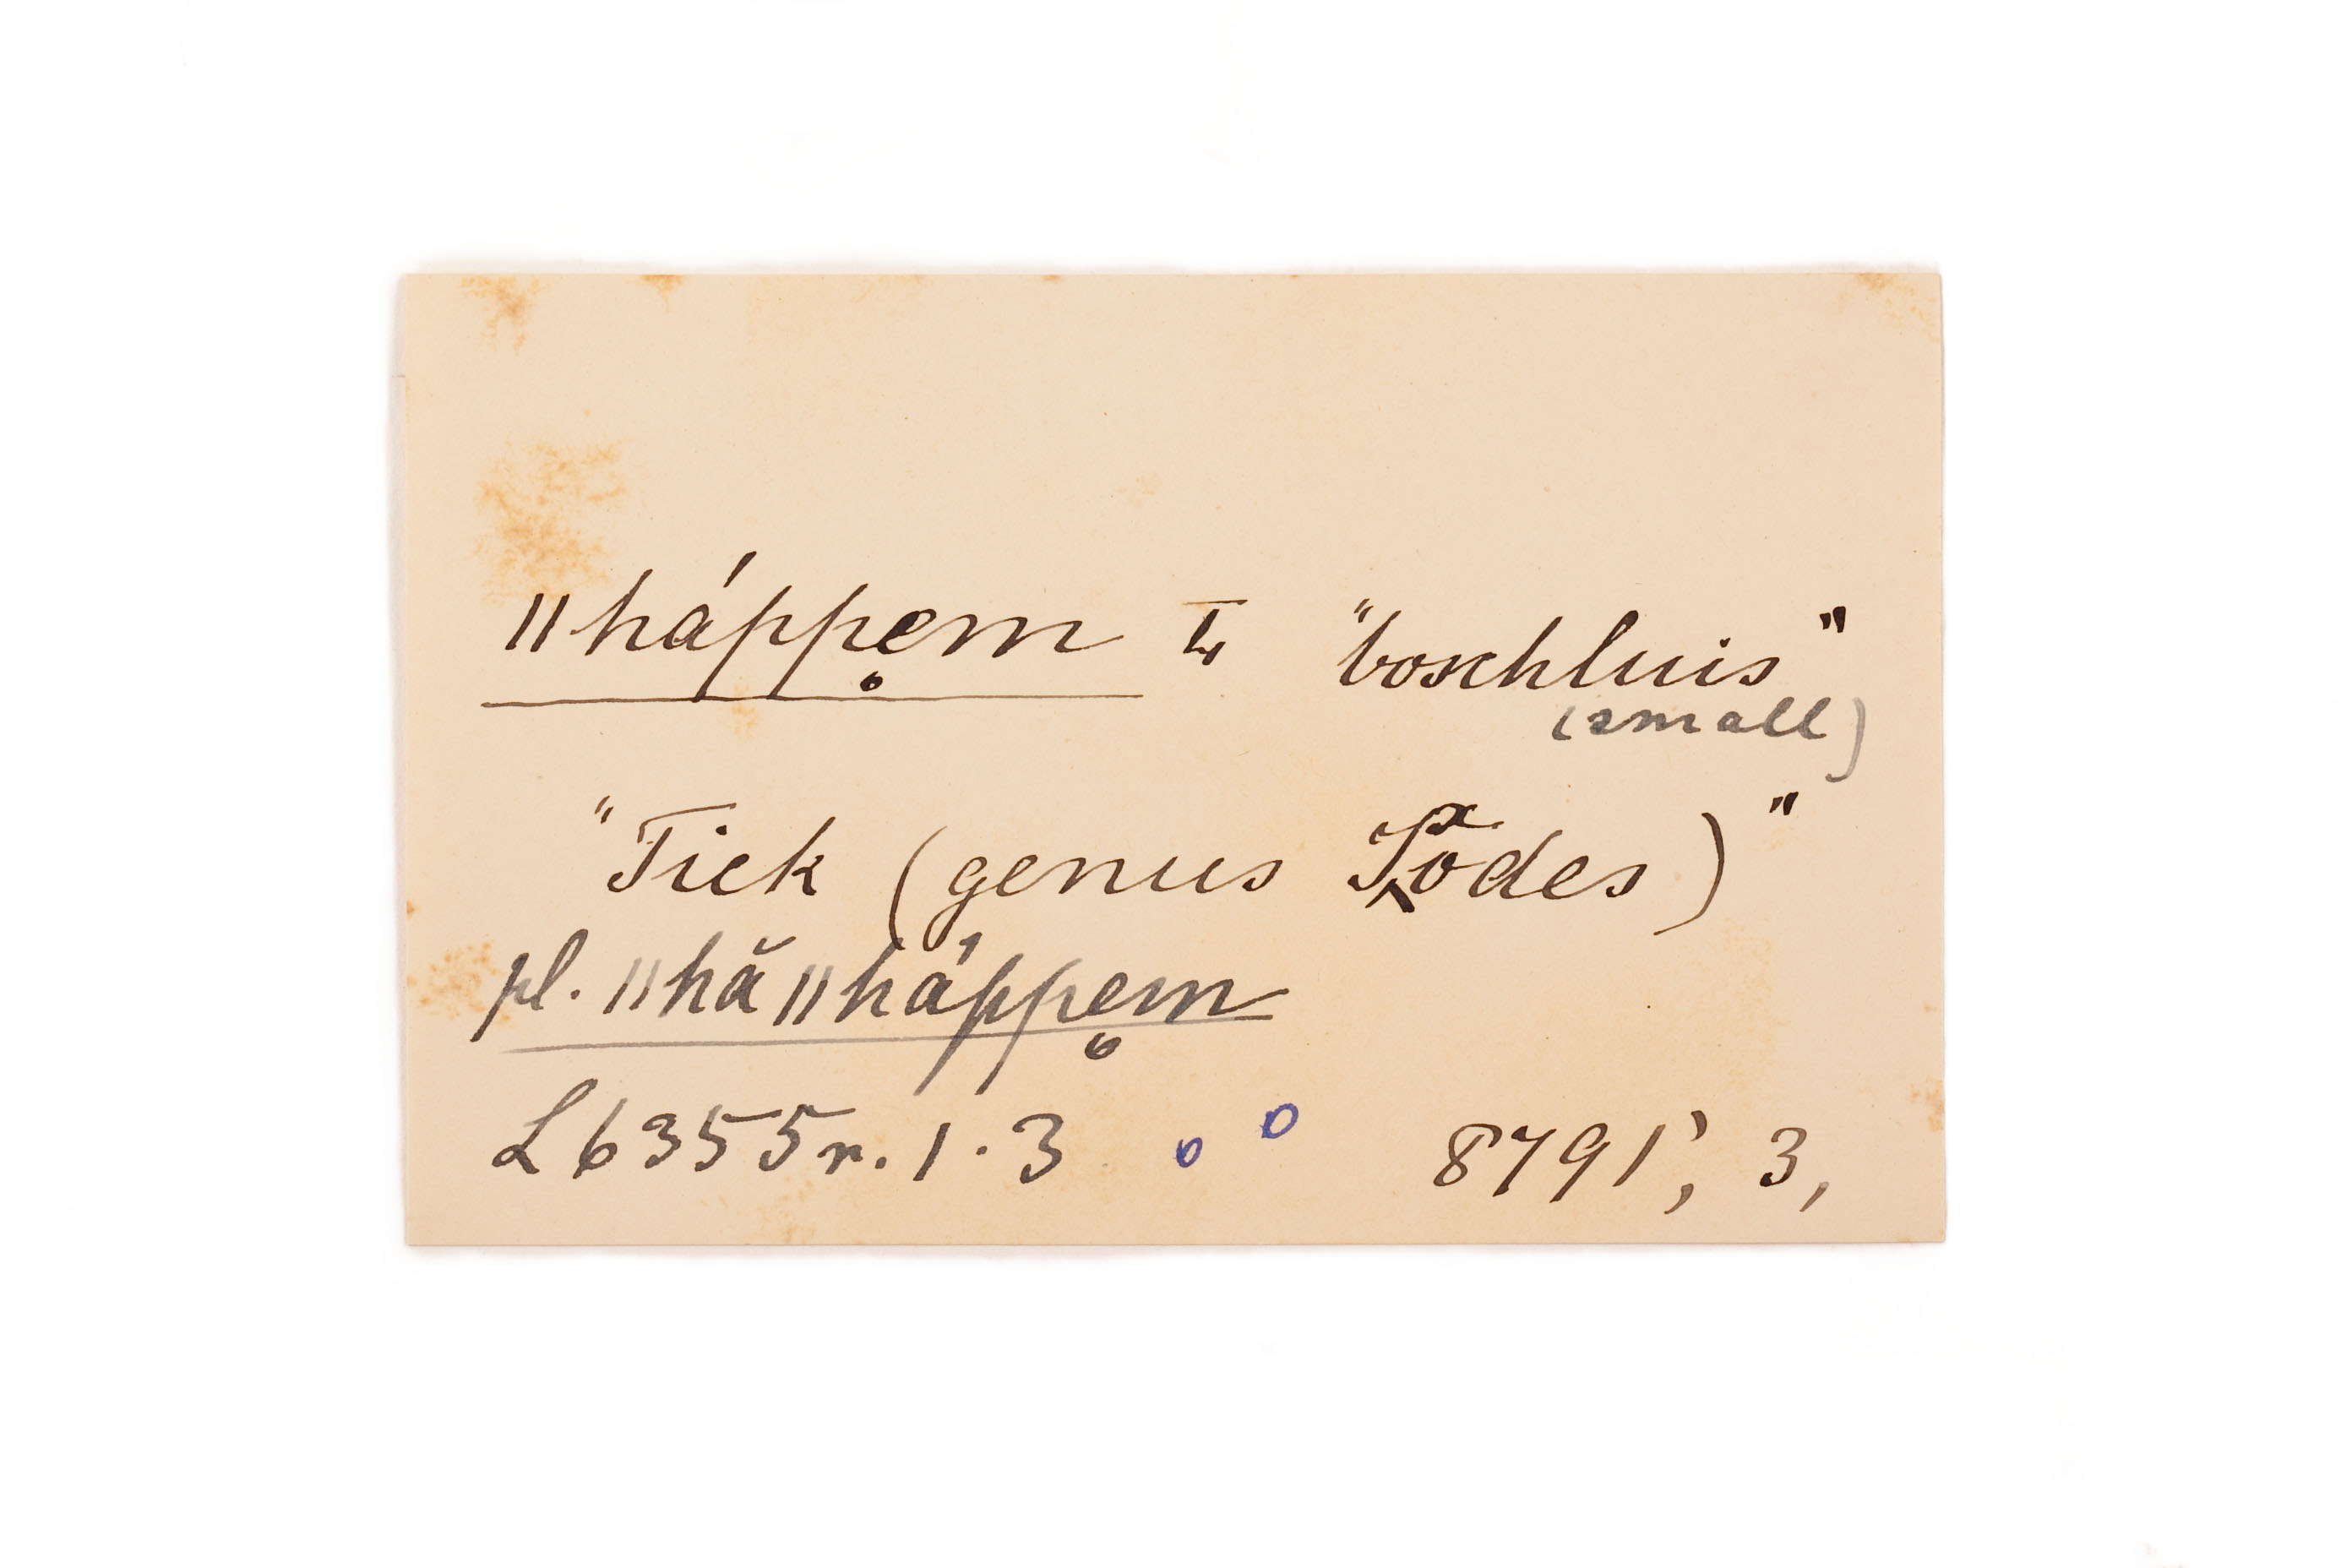 ǁháppe̥m I, "boschluis"
(small)
"Tick (genus Ixodes)"
pl. ǁhăǁháppe̥m
L 6355 r. 1.3 o o 8791', 3,